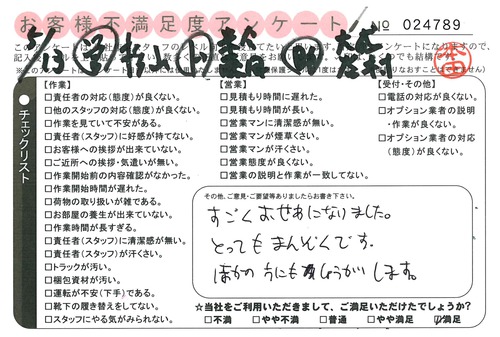 お客様不満足度アンケート
№ 024789
チェックリスト
【作業】
□責任者の対応(態度)が良くない。
□他のスタッフの対応(態度)が良くない。
□作業を見ていて不安がある。
□責任者(スタッフ)に好感が持てない。
□お客様への挨拶が出来ていない。
□ご近所への挨拶・気遣いが無い。
□作業開始前の内容確認がなかった。
□作業開始時間が遅れた。
□荷物の取り扱いが雑である。
□お部屋の養生が出来ていない。
□作業時間が長すぎる。
□責任者(スタッフ)に清潔感が無い。
□責任者(スタッフ)が汗くさい。
□トラックが汚い。
□梱包資材が汚い。
□運転が不安(下手)である。
□靴下の履き替えをしてない。
□スタッフにやる気がみられない。
【営業】
□見積もり時間に遅れた。
□見積もり時間が長い。
□営業マンに清潔感が無い。
□営業マンが煙草くさい。
□営業マンが汗くさい。
□営業態度が良くない。
□営業の説明と作業が一致してない。
【受付・その他】
□電話の対応が良くない。
□オプション業者の説明
・作業が良くない。
□オプション業者の対応
(態度)が良くない。
その他、ご意見・ご要望等ありましたらお書き下さい。
すごくおせわになりました。
とってもまんぞくです。
ほかの方にもしょうかいします。
☆当社をご利用いただきまして、ご満足いただけたでしょうか?
□不満 □やや不満 □普通 □やや満足 ☑満足